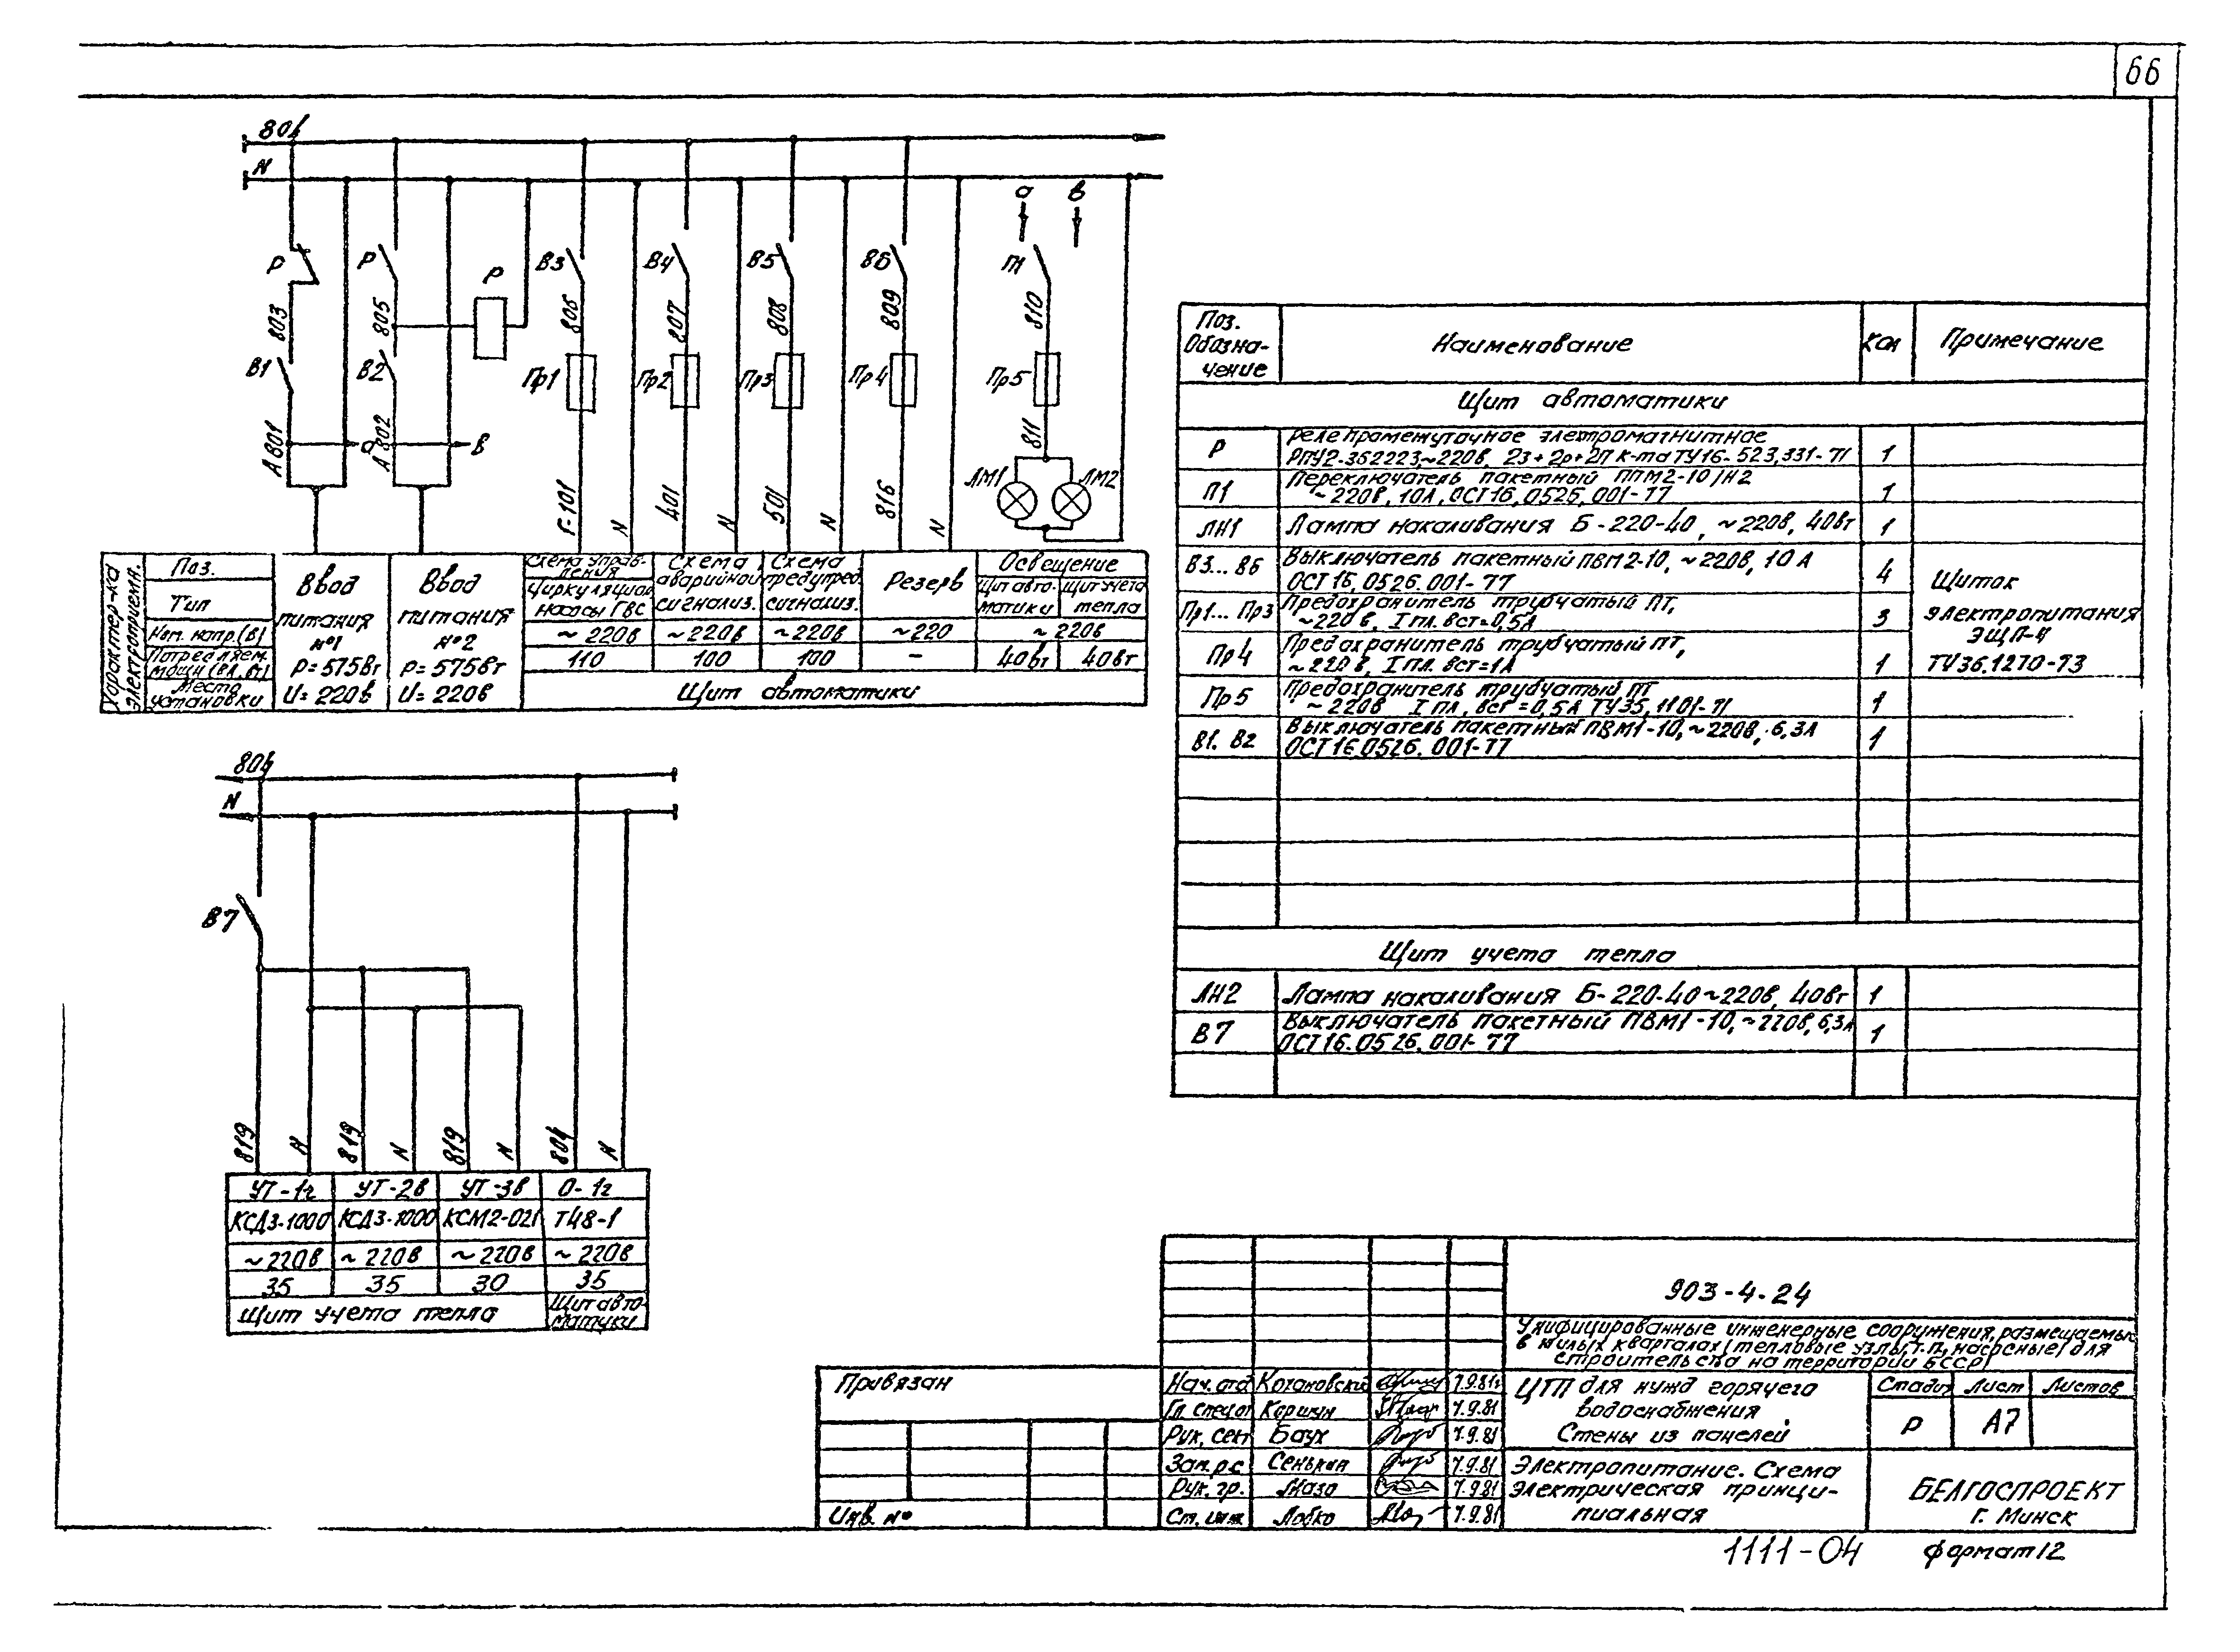 66
804
N
а
в
Р
Р
Р
В3
В4
В5
В6
П1
803
805
806
807
808
809
810
В1
В2
Пр1
Пр2
Пр3
Пр4
Пр5
А801
а
А802
в
811
ЛМ1
ЛМ2
Г-101
N
401
N
501
N
816
N
Характер-ка электроприемн.
Поз.
Тип
Ном. напр. (В)
Потребляем. мощн (ВА, Вт)
Место установки
Ввод питания №1 Р=575Вт U=220в
Ввод питания №2 Р=575Вт U=220в
Схема управления циркуляцион насосы ГВС
Схема аварийной сигнализ.
Схема предупред. сигнализ.
Резерв
Освещение
Щит автоматики
Щит учета тепла
~220в
~220в
~220в
~220
~220в
110
100
100
-
40вт
40вт
Щит автоматики
804
N
В7
819
N
819
N
819
N
804
N
УТ-1г
УТ-2в
УТ-3в
О-1г
КСД3-1000
КСД3-1000
КСМ2-021
Т48-1
~220в
~220в
~220в
~220в
35
35
30
35
Щит учета тепла
Щит автоматики
Поз. Обозначение
Наименование
Кол
Примечание
Щит автоматики
Р
Реле промежуточное электромагнитное
РПУ2-362223,~220в, 2з+2р+2П к-та ТУ16-523,331-71
1
П1
Переключатель пакетный ППМ2-10/Н2
~220в, 10А, ОСТ16,0526,001-77
1
ЛН1
Лампа накаливания Б-220-40, ~220в, 40вт
1
В3...В6
Выключатель пакетный ПВМ2-10, ~220в, 10А
ОСТ16,0526.001-77
4
Щиток
электропитания
ЭЩП-4
ТУ36.1270-73
Пр1...Пр3
Предохранитель трубчатый ПТ,
~220в, I пл. вст=0,5А
3
Пр4
Предохранитель трубчатый ПТ,
~220в, I пл. вст=1А
1
Пр5
Предохранитель трубчатый ПТ
~220в I пл. вст=0,5А ТУ35,1101-71
1
В1. В2
Выключатель пакетный ПВМ1-10, ~220в, 6,3А
ОСТ16.0526.001-77
1
Щит учета тепла
ЛН2
Лампа накаливания Б-220-40 ~220в, 40вт
1
В7
Выключатель пакетный ПВМ1-10, ~220в, 6,3А
ОСТ16.0526.001-77
1
903-4-24
Унифицированные инженерные сооружения, размещаемые
в жилых кварталах (тепловые узлы, т.п, насосные) для
строительства на территории БССР
Привязан
Инв. №
Нач. отд Кагановский 7.9.81г
Гл. спец от Коршун 7.9.81
Рук. сект Баух 7.9.81
Зам. рс Сенькин 7.9.81
Рук. гр. Мазо 7.9.81
Ст. инж Лобко 7.9.81
ЦТП для нужд горячего
водоснабжения.
Стены из панелей
Стадия
Лист
Листов
Р
А7
Электропитание. Схема
электрическая принци-
пиальная
БЕЛГОСПРОЕКТ
г. Минск
1111-04
формат 12